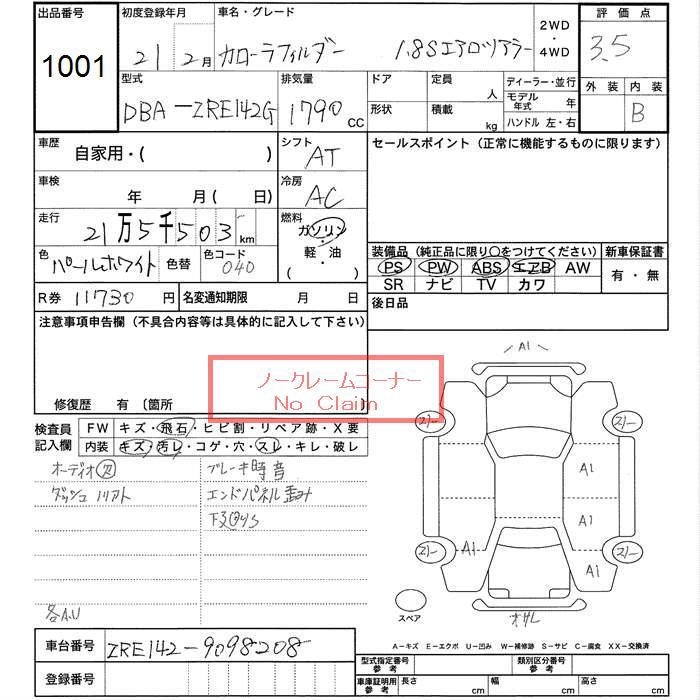 出品番号 初度登録年月 車名・グレード 2WD・4WD 評価点
1001 21年2月 カローラフィルダー 1.8Sエアロツアラー 3.5
型式 排気量 ドア 定員 人 ディーラー・並行 外装 内装
DBA-ZRE142G 1790cc 形状 積載 kg モデル年式 年 B
ハンドル 左・右
車歴 自家用・( ) シフト AT セールスポイント(正常に機能するものに限ります)
車検 年 月( 日) 冷房 AC
走行 21万5千503km 燃料 ガソリン・軽油・( )
色 パールホワイト 色替 色コード 040
装備品(純正品に限り○をつけてください) 新車保証書
PS PW ABS エアB AW 有・無
SR ナビ TV カワ
R券 11730円 名変通知期限 月 日 後日品
注意事項申告欄(不具合内容等は具体的に記入して下さい)
ノークレームコーナー
No Claim
修復歴 有 〔箇所
検査員記入欄 FW キズ・飛石・ヒビ割・リペア跡・X要
内装 キズ・汚レ・コゲ・穴・スレ・キレ・破レ
オーディオ欠 ブレーキ時音
エンドパネル歪み
各A.U
A1
21- 21-
A1
A1
21- A1 A1 21-
スペア
車台番号 ZRE142-9098208
A-キズ E-エクボ U-凹み W-補修跡 S-サビ C-腐食 XX-交換済
登録番号 型式指定番号 参考 類別区分番号 参考
車庫証明用 参考 長さ cm 幅 cm 高さ cm